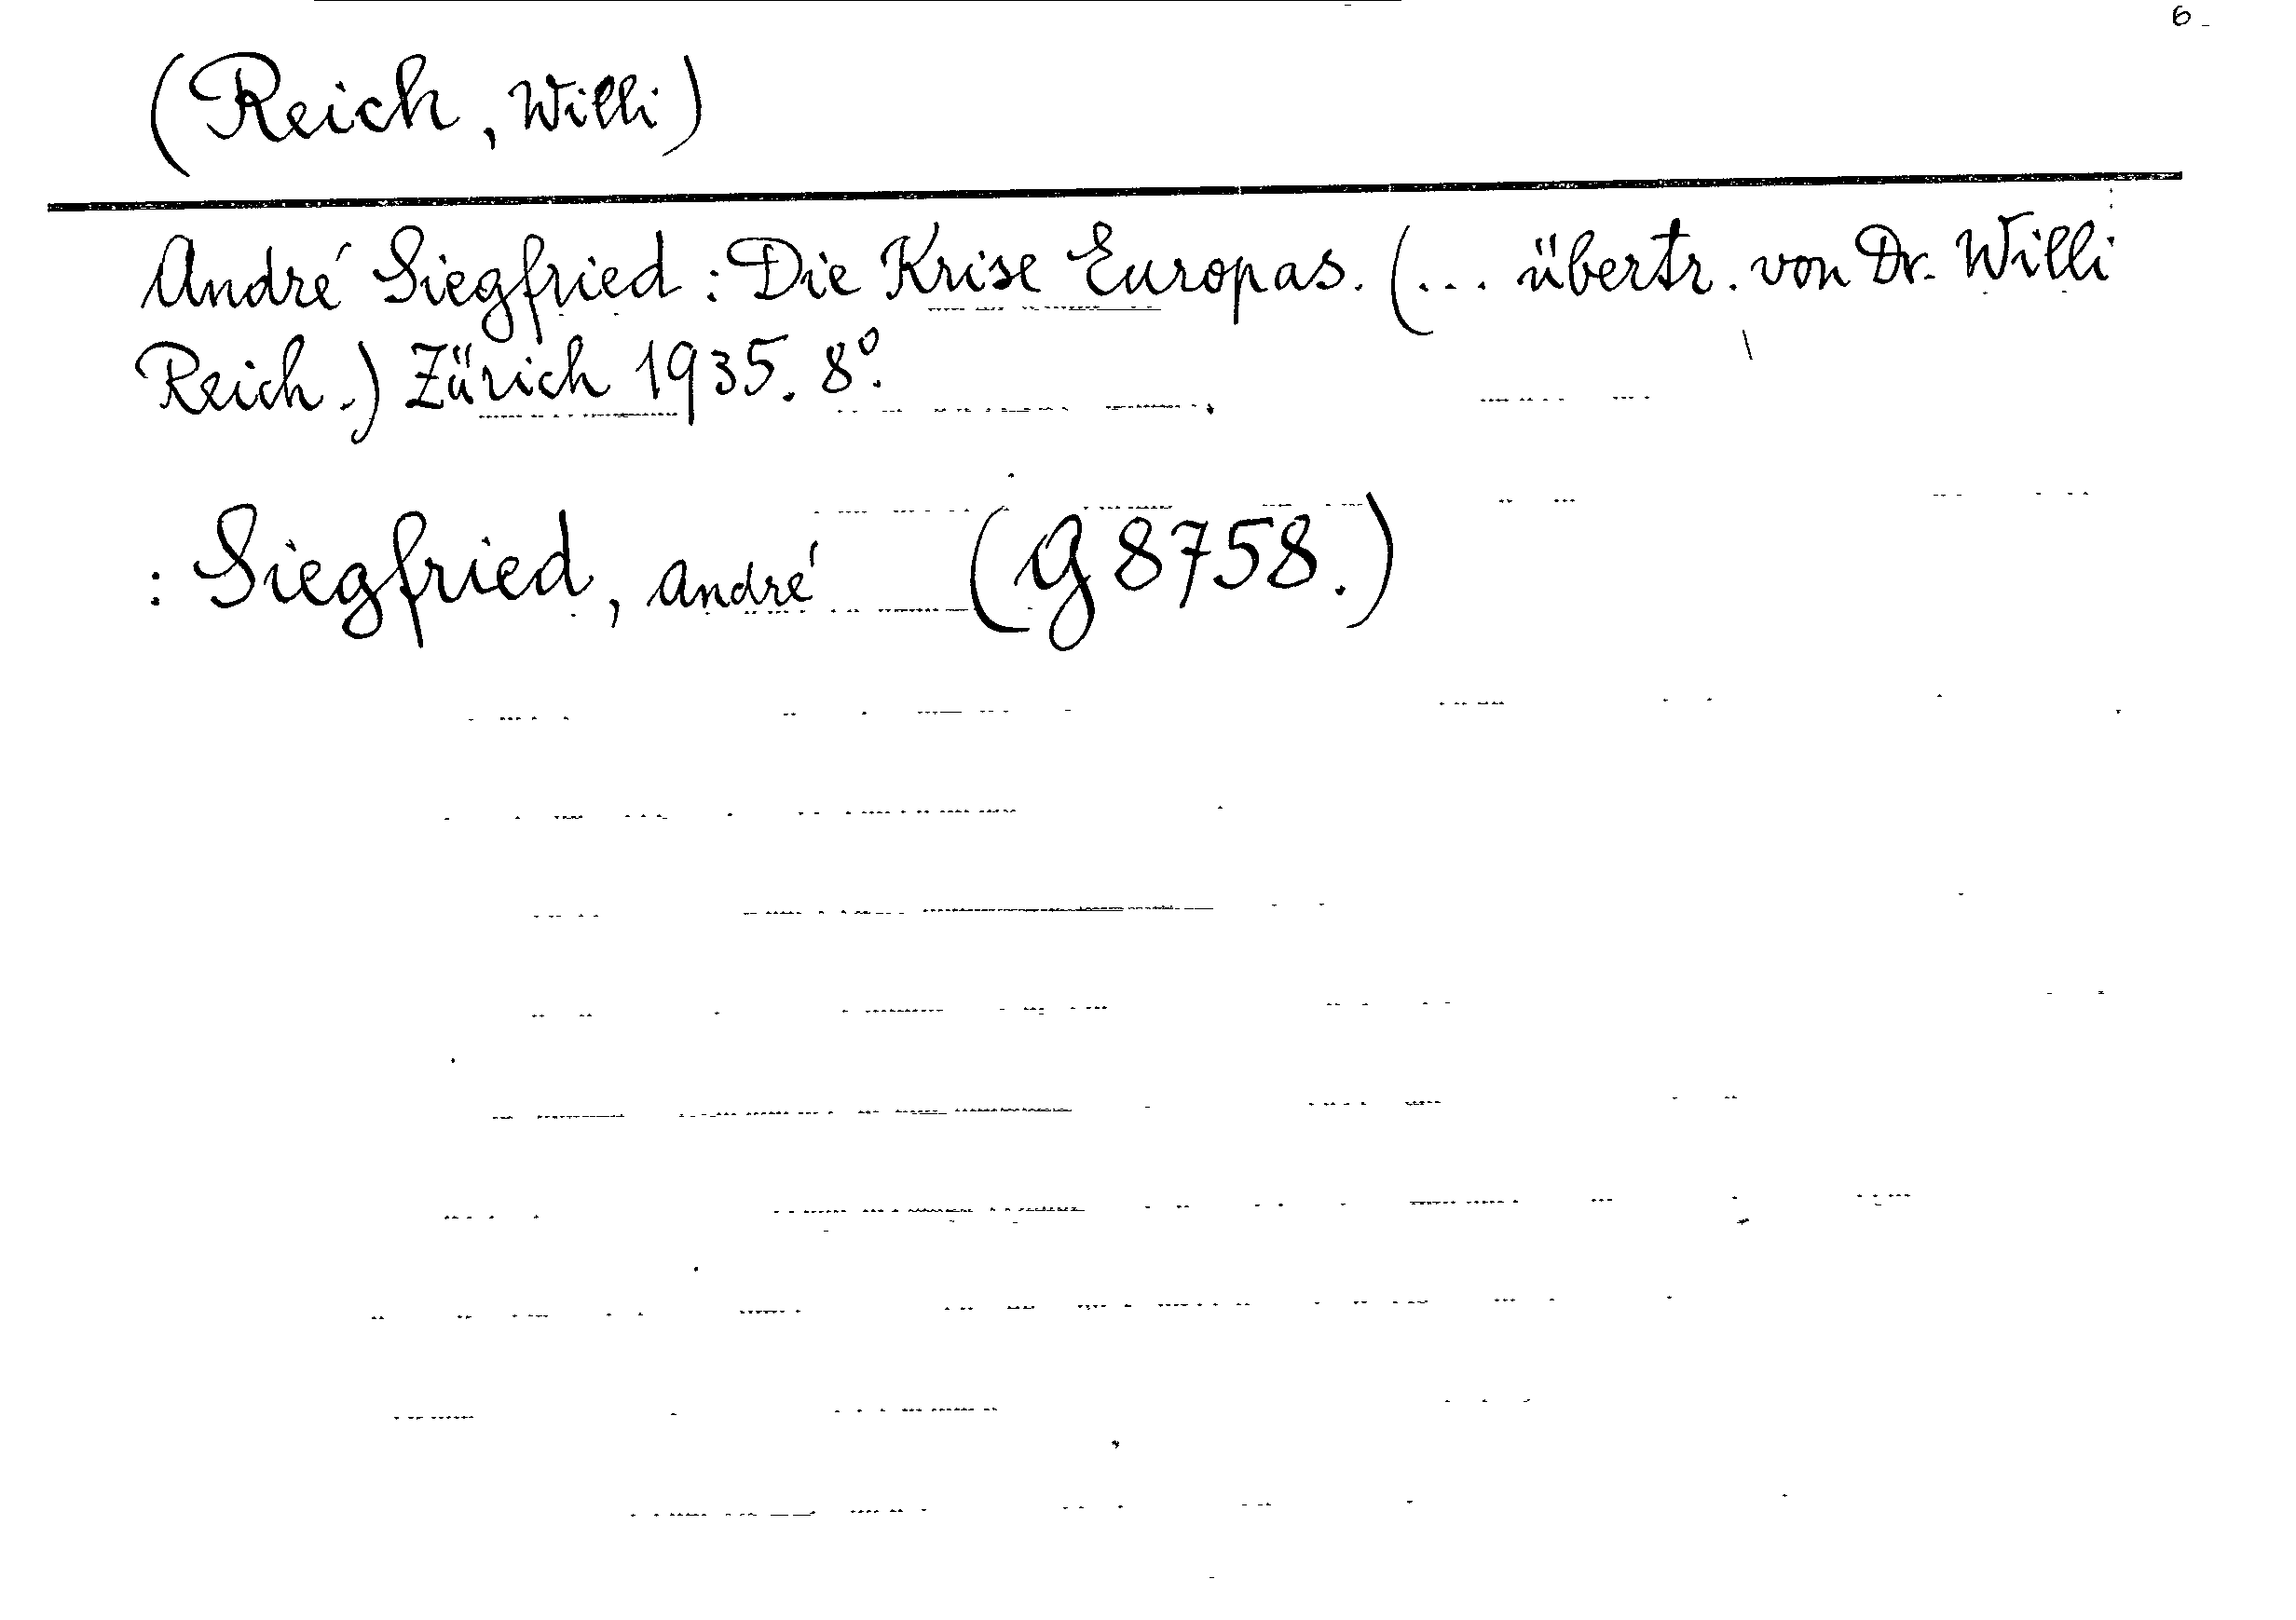 6
(Reich, Willi)
André Siegfried: Die Krise Europas. (... übertr. von Dr. Willi
Reich.) Zürich 1935. 8°.
: Siegfried, André (G 8758.)